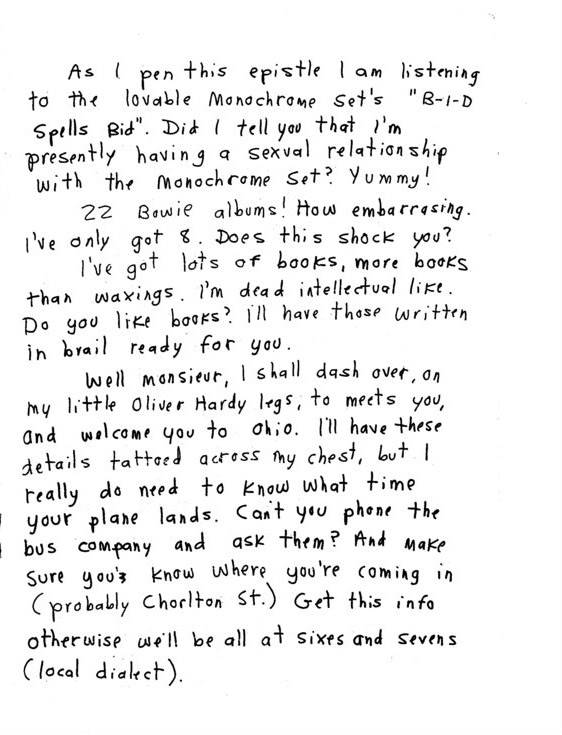 As I pen this epistle I am listening
to the lovable Monochrome Set's "B-I-D
Spells Bid". Did I tell you that I'm
presently having a sexual relationship
with the Monochrome Set? Yummy!
22 Bowie albums! How embarrasing.
I've only got 8. Does this shock you?
I've got lots of books, more books
than waxings. I'm dead intellectual like.
Do you like books? I'll have those written
in brail ready for you.
Well monsieur, I shall dash over, on
my little Oliver Hardy legs, to meets you,
and welcome you to Ohio. I'll have these
details tattoed across my chest, but I
really do need to know what time
your plane lands. Can't you phone the
bus company and ask them? And make
sure you's know where you're coming in
(probably Chorlton St.) Get this info
otherwise we'll be all at sixes and sevens
(local dialect).